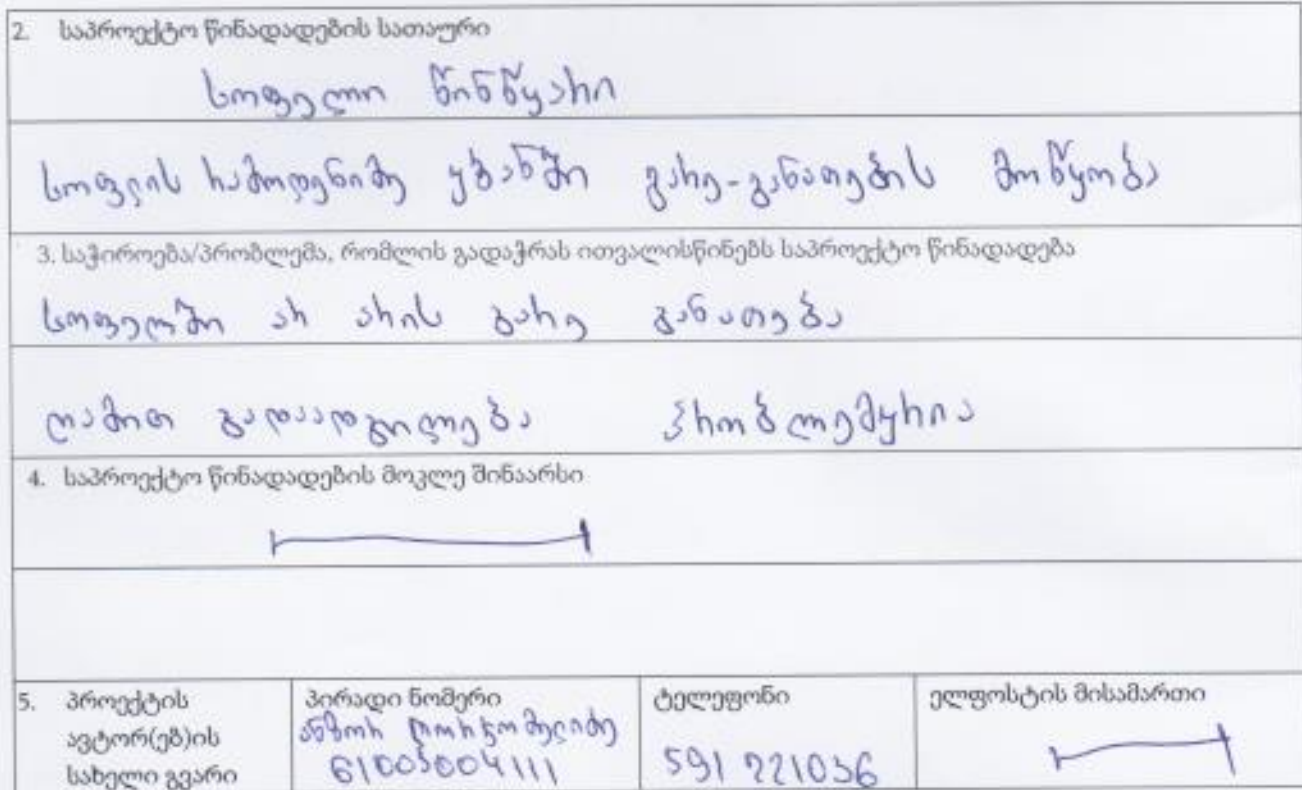 2. საპროექტო წინადადების სათაური
სოფელი წინწყარი
სოფლის რამოდენიმე უბანში გარე-განათების მოწყობა
3. საჭიროება/პრობლემა, რომლის გადაჭრას ითვალისწინებს საპროექტო წინადადება
სოფელში არ არის გარე განათება
ღამით გადაადგილება პრობლემურია
4. საპროექტო წინადადების მოკლე შინაარსი
5. პროექტის ავტორ(ებ)ის სახელი გვარი
პირადი ნომერი
ანზორ
61003004111
ტელეფონი
591 221036
ელფოსტის მისამართი